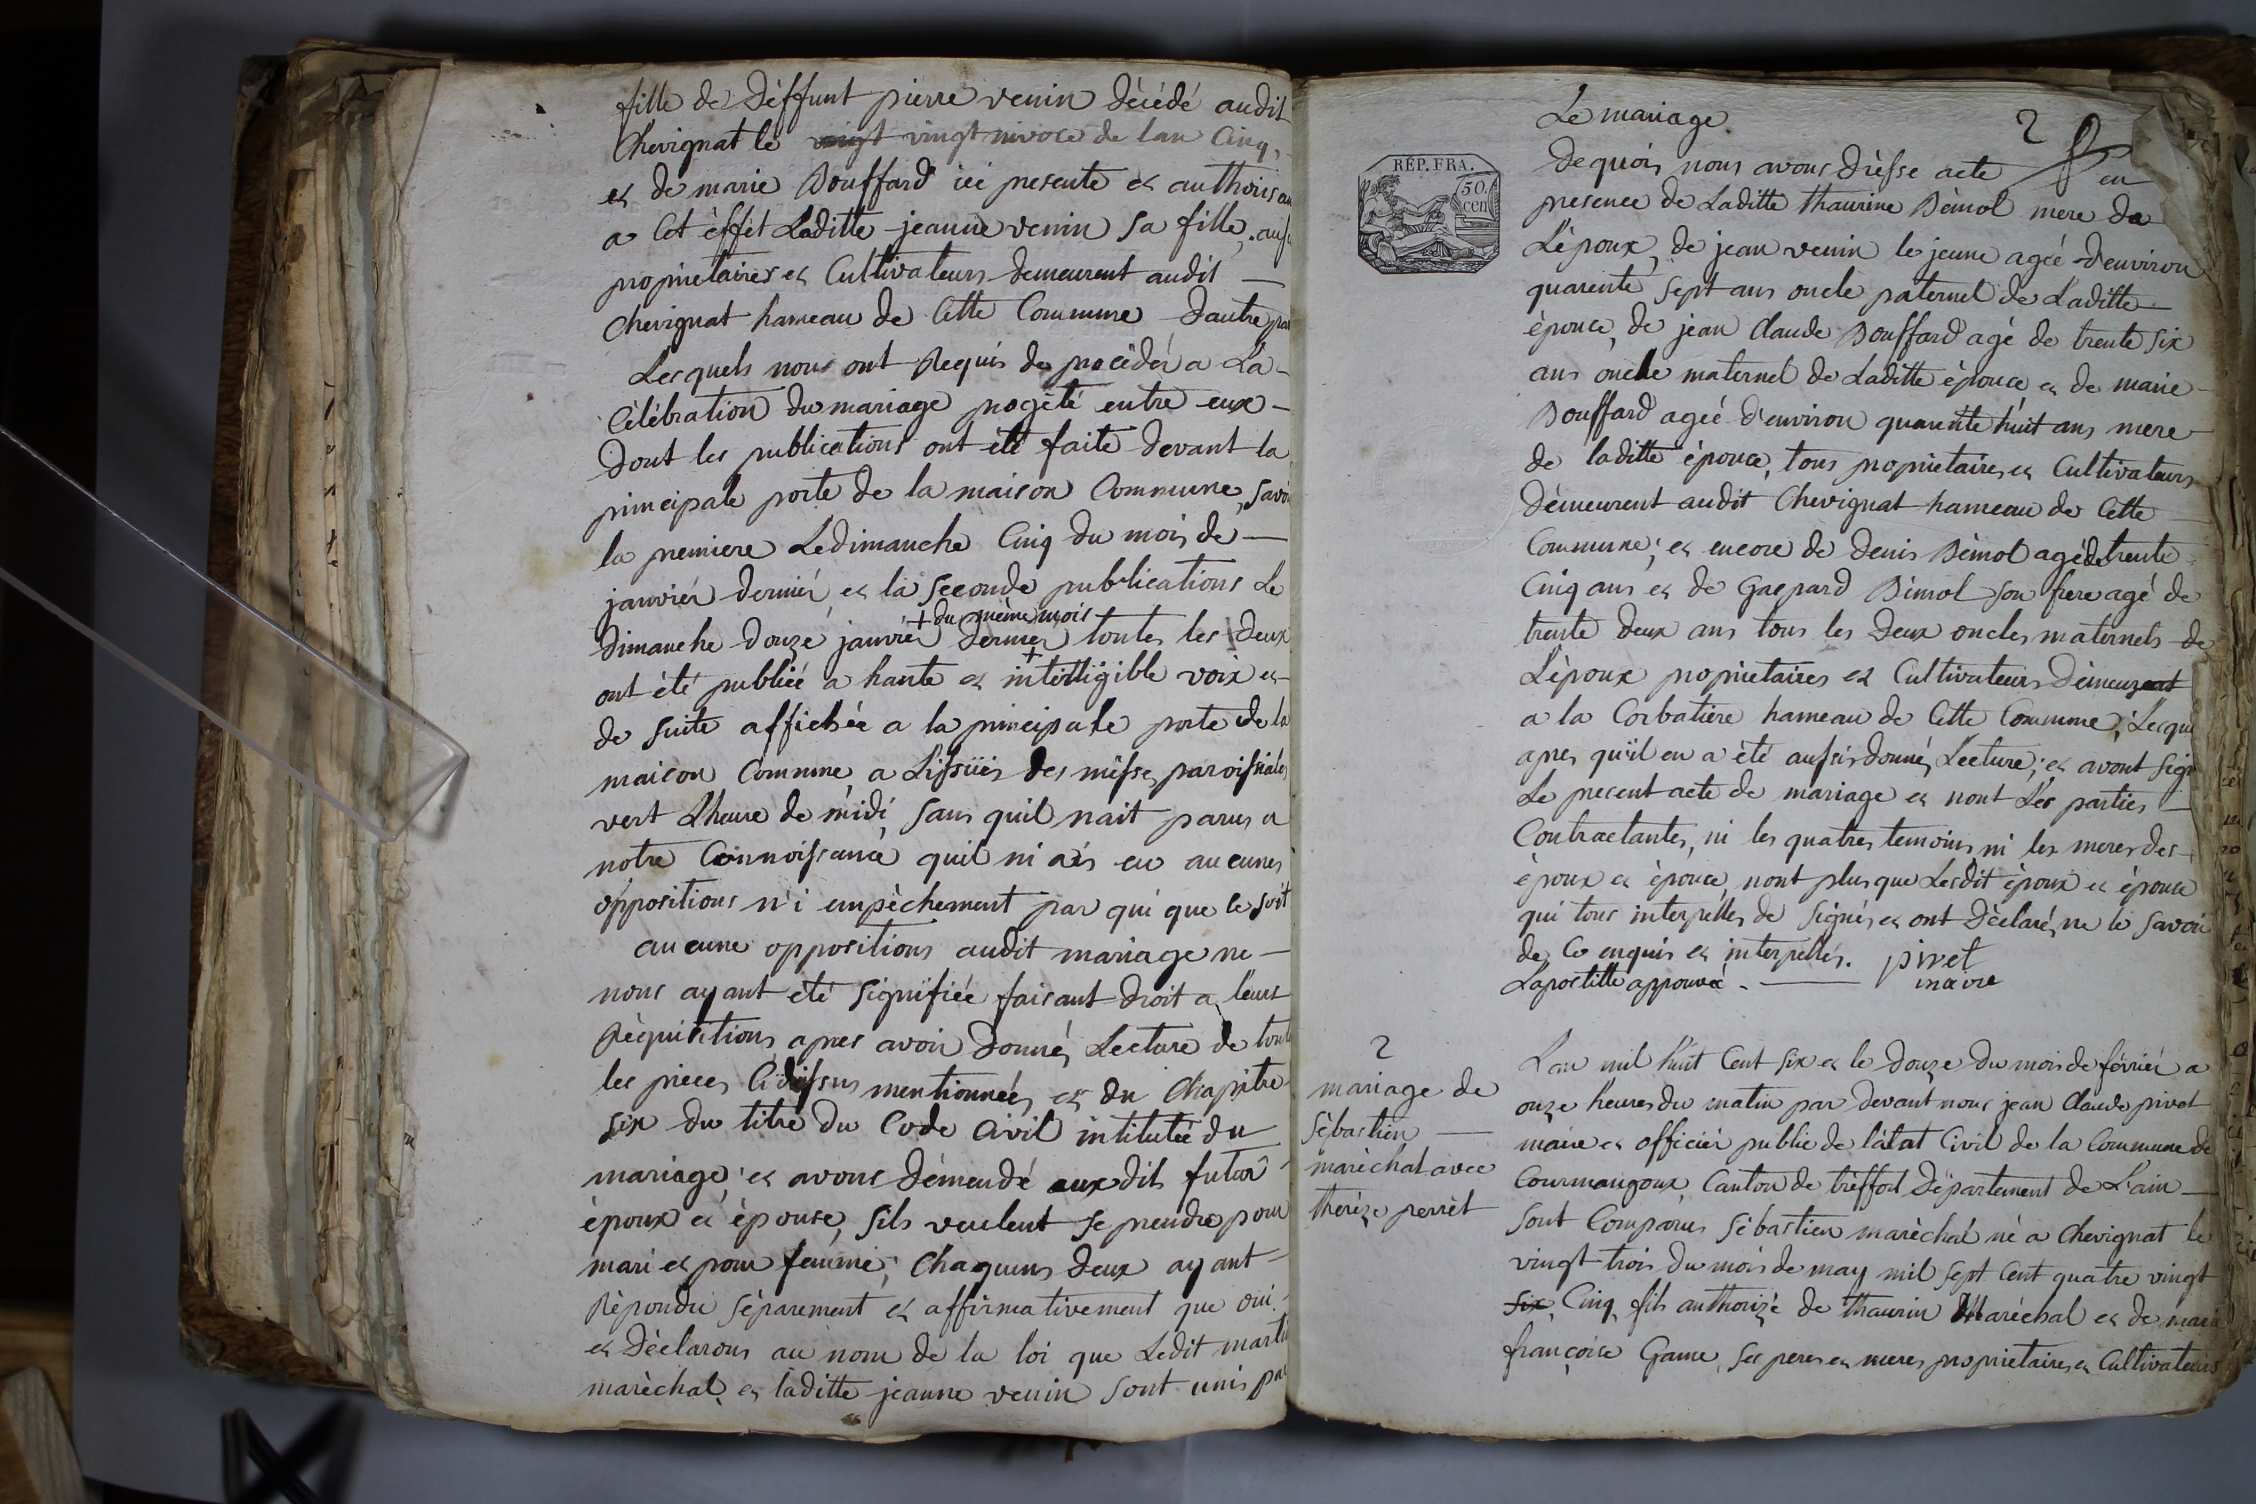 fille de Déffunt pierre venin Décédé audit
Chevignat le vingt vingt nivose de lan Cinq,
et de marie Bouffard ici presente et authorisant
a Cet èffet Laditte jeanne venin sa fille, aussi
propriétaires et Cultivateurs demeurent audit —
Chevignat hameau de Cette Commune D'autre par
Lesquels nous ont Requis de procéder a La
Célébration du mariage progété entre eux —
Dont les publications ont été faite Devant la
principale porte de la maison Commune, savoi
la premiere Le dimanche Cinq du mois de —
janviér derniér, et la Seconde publications Le
+ du même mois
Dimanche douze janviér dernier toutes les Deux
ont été publiée a haute et intelligible voix et
de suite affichée a la principale porte de la
maison Commune a L'issüës des mésse, paroissiales
vert L'heure de midi, sans quil nait parus a
notre Connoissance quil ni ais eu aucunes
oppositions n'i empèchement par qui que ce soit
aucune oppositions audit mariage ne —
nous ayant été signifiée faisant Droit a leurs
Réquisitions apres avoir donné, Lecture de toute
les pieces Cidéssus mentionnées et du Chapitre
six du titre du Code Civil intitulée du
mariage et avons Démendé auxdits futur
époux et épouse, sils veulent se prendre pour
mari et pour femme, Chaquuns Deux ayant
Répondu séparement et affirmativement que oui
et Déclarons au nom de la loi que Ledit martin
maréchal, et laditte jeanne venin sont unis par
2
Le mariage.
De quoi, nous avons Drésse acte en
presence de Laditte thaurine Bémol mere de
L'époux, de jean venin le jeune agée d'environ
quarente sept ans oncle paternel de Laditte
épouce, de jean Claude Bouffard agé de trente six
ans oncle maternel de Laditte épouce et de marie
Bouffard agée d'environ quarente huit ans mere
de laditte épouce, tous propriétaires et Cultivateurs
Démeurent audit Chevignat hameau de Cette
Commune; et encore de Denis Bémol agé de trente
Cinq ans et de Gaspard Bémol son frere agé de
trente deux ans tous les Deux oncles maternels de
L'époux propriétaires et Cultivateurs Démeurent
a la Corbatiere hameau de Cette Commune, Lesqu
apres qu'il en a été aussis donné, Lecture, et avont sign
Le present acte de mariage et nont Les parties
Contractantes, ni les quatres temoins ni les meres des
époux et épouce, nont plus que Lesdit époux et épouse
qui tous interpellés de signés, et ont Déclaré, ne le savoir
de Ce enquis et interpellés. pivet
Lapostille approuvée. — maire
RÉP. FRA.
50.
cen
2
mariage de
Sébastien —
maréchal avec
thérèze perrèt
L'an mil huit Cent six et le douze du mois de févriér a
onze heures du matin par devant nous jean Claude pivet
maire et officier public de l'état Civil de la Commune de
Courmangoux, Canton de tréffort Département de L'ain —
sont Comparus Sébastien maréchal né a Chevignat le
vingt trois du mois de may mil sept Cent quatre vingt
six Cinq, fils authorizé de thaurin Maréchal et de marie
françoise Game, ses peres et meres propriétaires et Cultivateurs